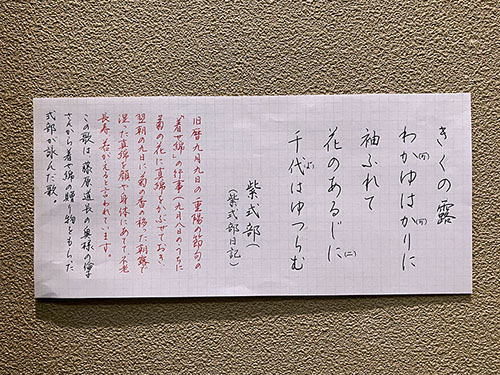 きくの露
わか(可)ゆはか(可)りに
袖ふれて
花のあるじに(二)
千代はゆつらむ
よ
紫式部
(紫式部日記)
旧暦九月九日の重陽の節句の
「着せ綿」の行事(九月八日のうちに
菊の花に真綿をかぶせておき、
翌朝の九日に菊の香の移った朝露で
湿った真綿を顔や身体にあてると不老
長寿、若がえると言われています。
この歌は藤原道長の奥様の倫子
さんから着せ綿の贈り物をもらった
式部が詠んだ歌。